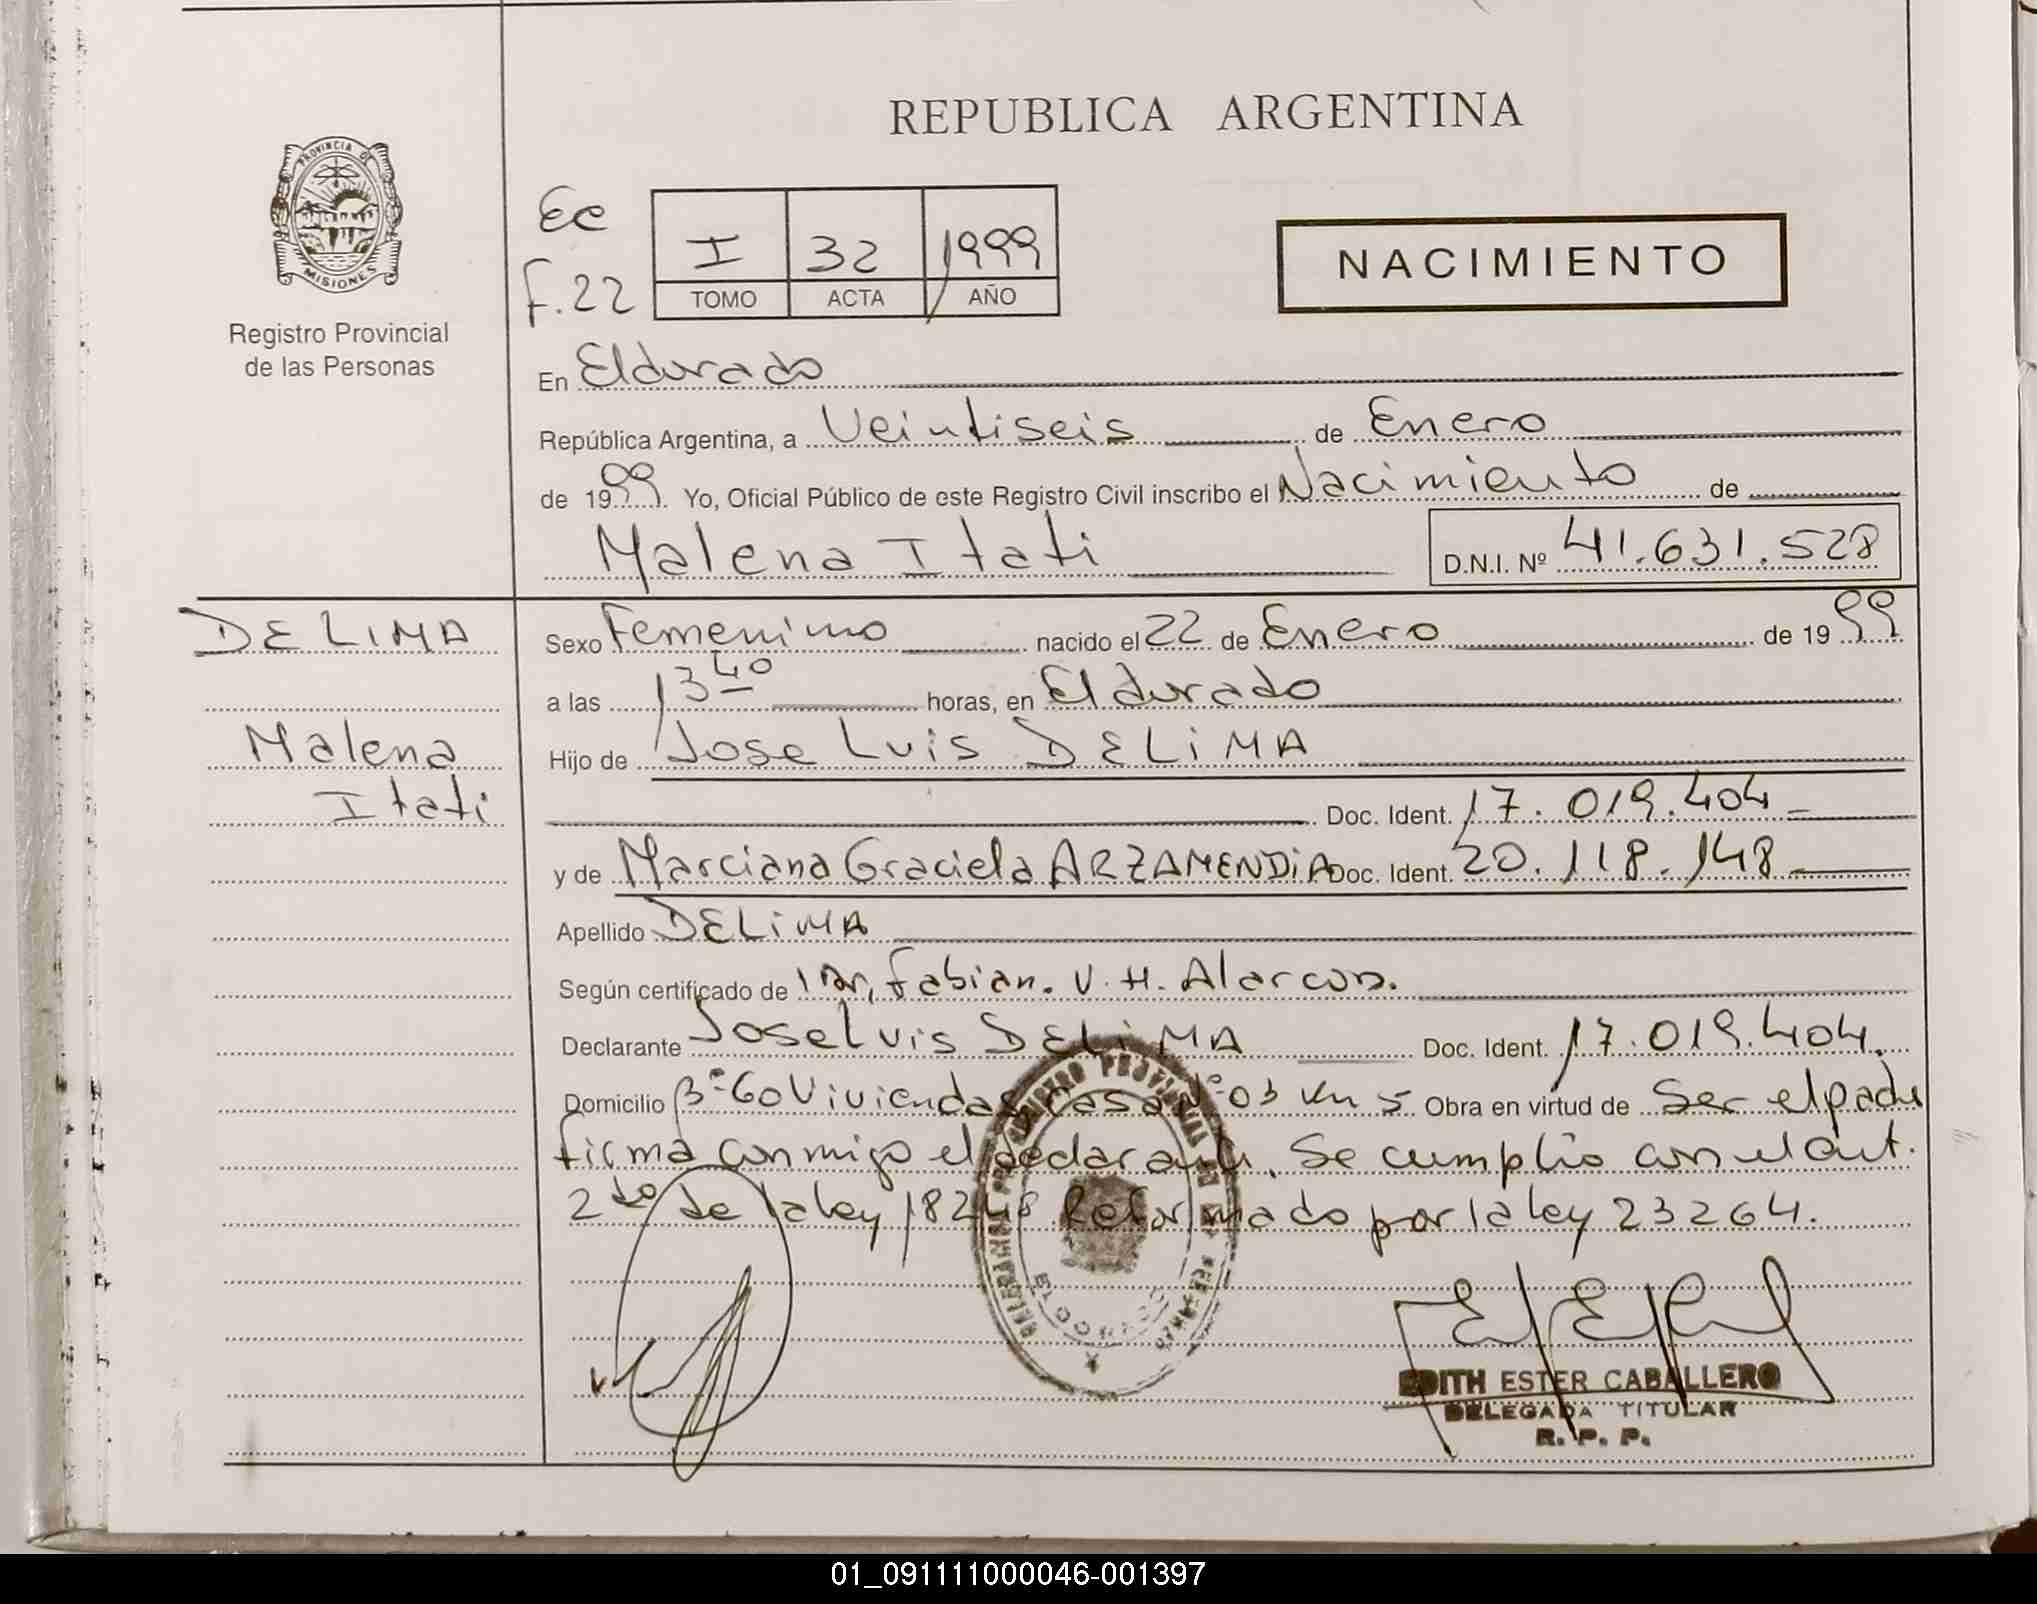 REPUBLICA ARGENTINA
PROVINCIA DE
MISIONES
Registro Provincial
de las Personas
Ec
F.22
I 32 1999
TOMO ACTA AÑO
NACIMIENTO
En Eldorado
República Argentina, a Veintiseis de Enero
de 1999. Yo, Oficial Público de este Registro Civil inscribo el Nacimiento de
Malena Itati D.N.I. Nº 41.631.528
DE LIMA
Malena
Itati
Sexo Femenino nacido el 22 de Enero de 1999
a las 13 40 horas, en Eldorado
Hijo de Jose Luis DE LiMA
Doc. Ident. 17.019.404
y de Marciana Graciela ARZAMENDiA Doc. Ident. 20.118.148
Apellido DE LiMA
Según certificado de Fabian. V. H. Alarcon.
Declarante Jose Luis DE LiMA Doc. Ident. 17.019.404.
Domicilio Bº 60 Viviendas casa Nº 03 Km 5 Obra en virtud de Ser el padre
firma conmigo el declarante. Se cumplio con el art.
2do de la ley 18248 Reformado por la ley 23264.
EDITH ESTER CABALLERO
DELEGADA TITULAR
R. P. P.
01_091111000046-001397